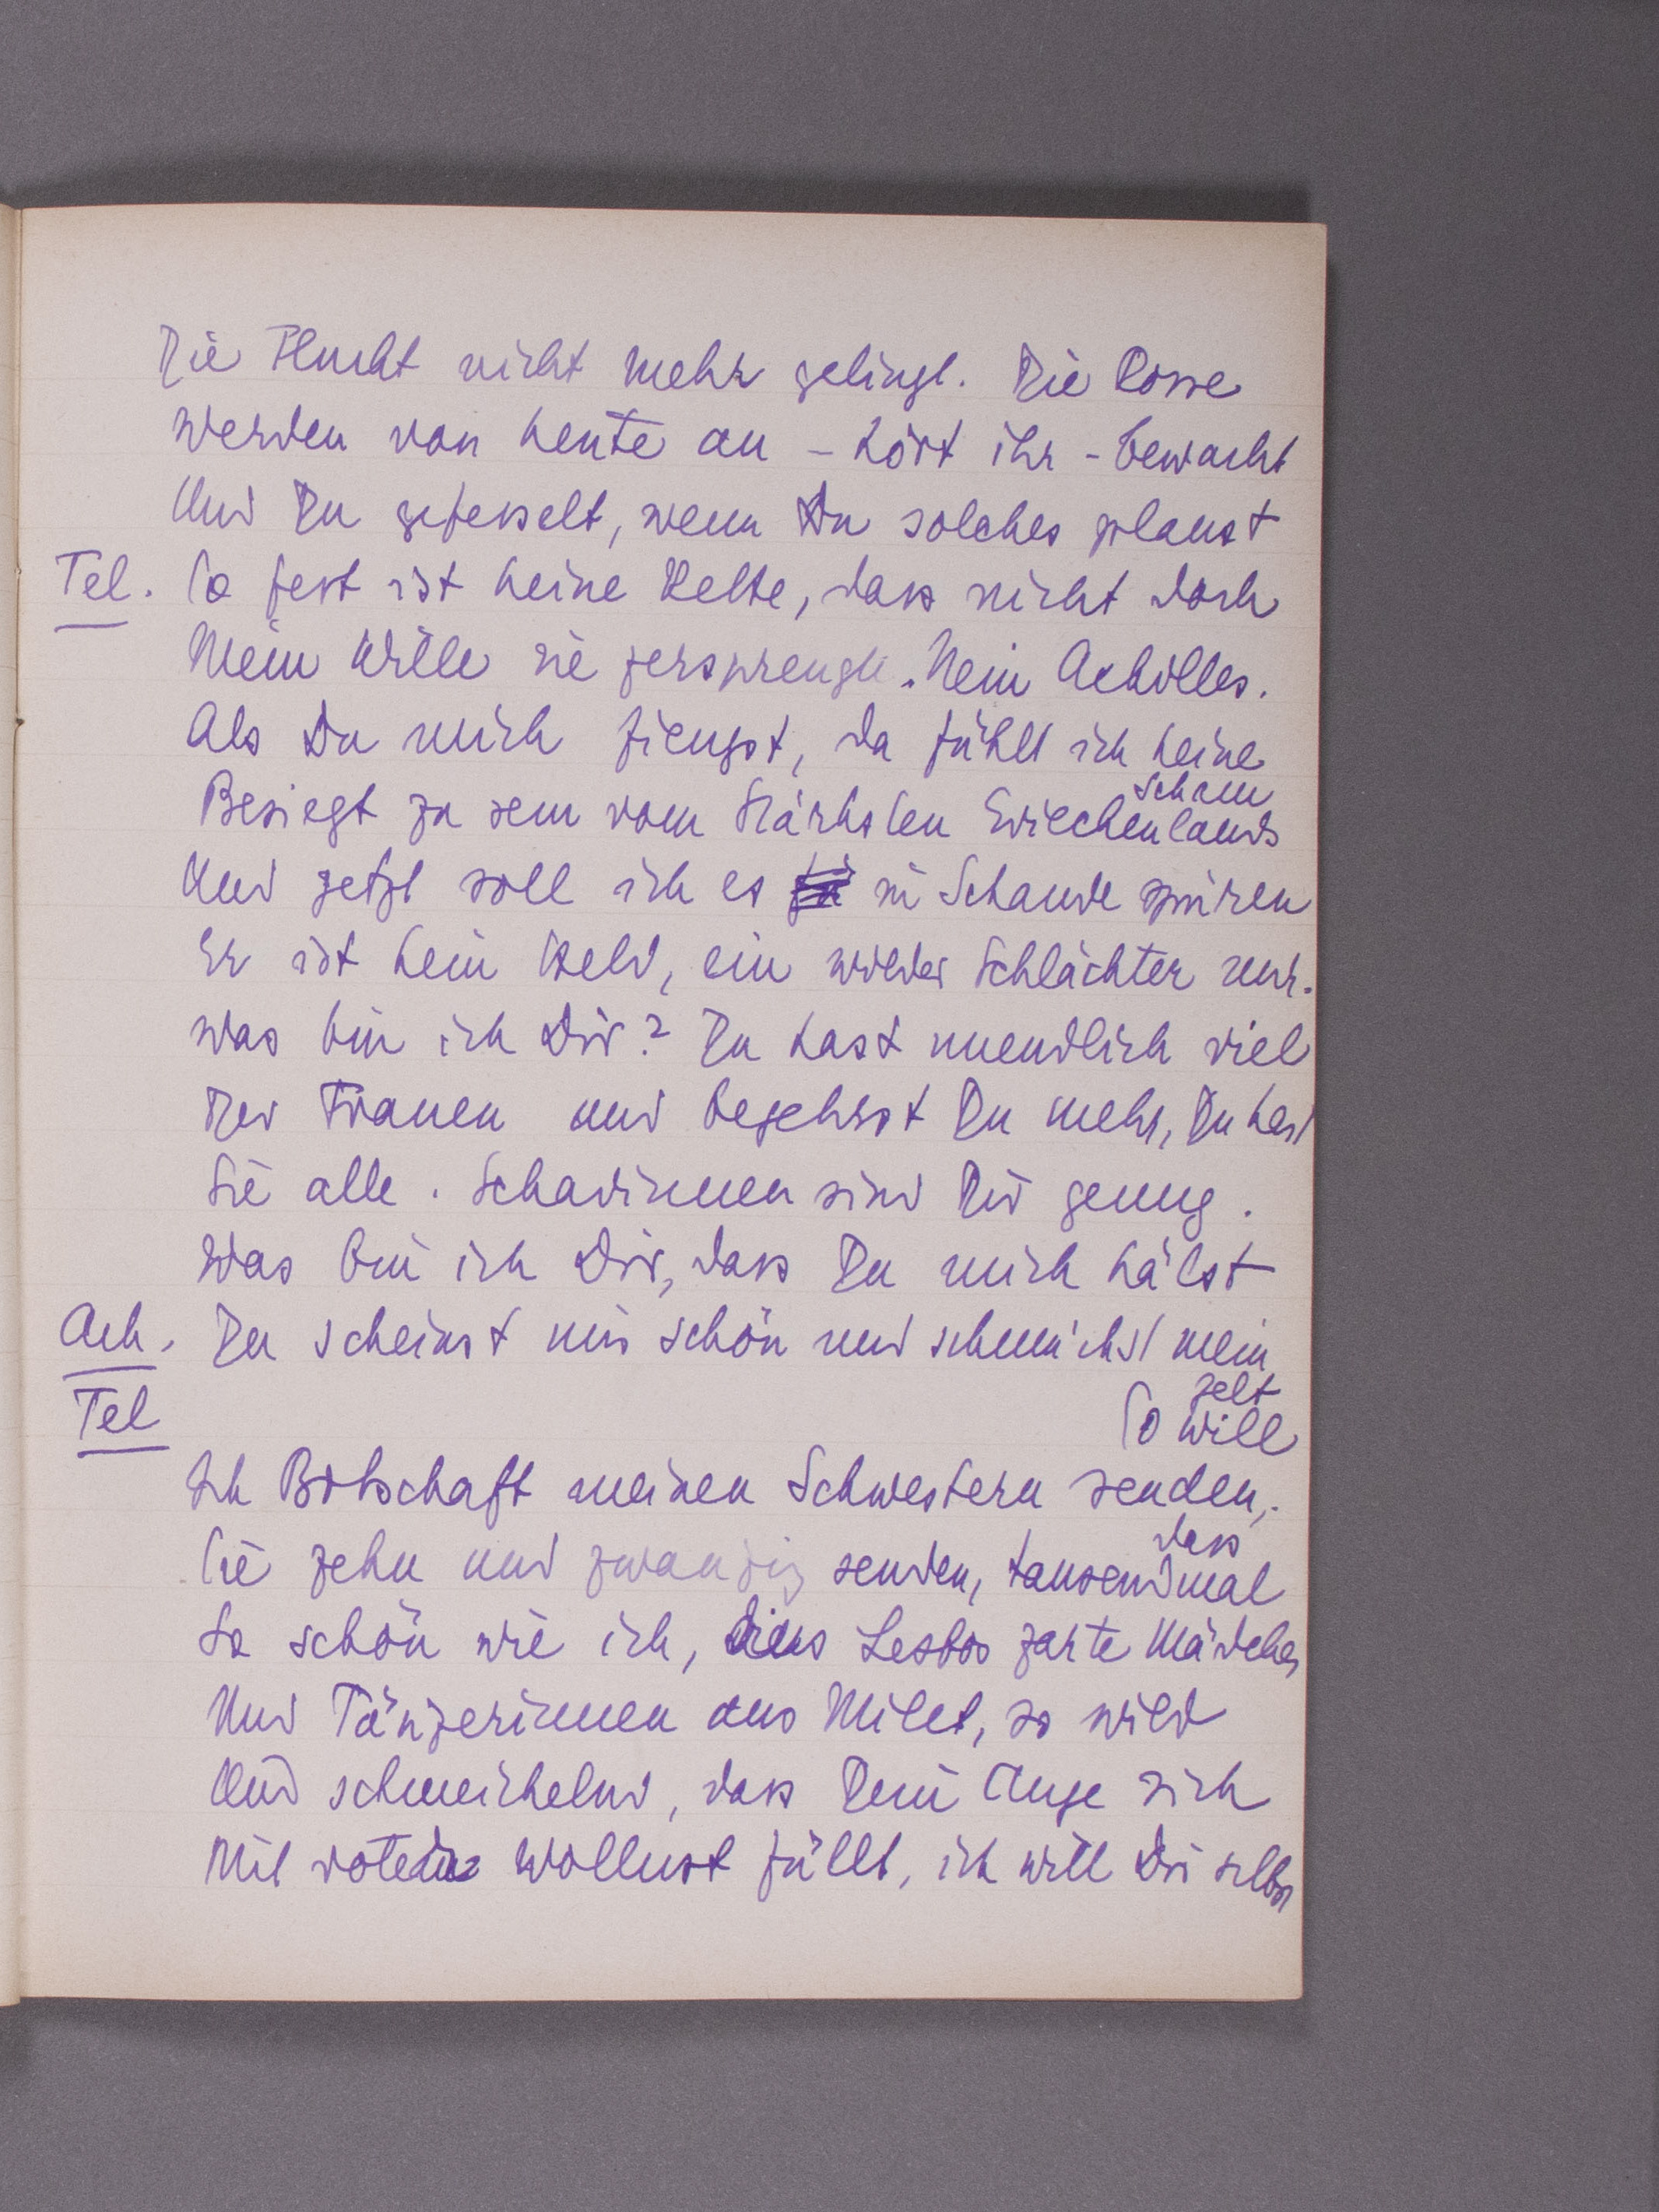 Die Flucht nicht mehr gelingt. Die Rosse
Werden von heute an – hört ihr – bewacht
Und Du gefesselt, wenn Du solches planst
Tel. So fest ist keine Kette, dass nicht doch
Mein Wille sie zersprengte. Nein Achilles.
Als Du mich fiengst, da fühlt ich keine
Scham
Besiegt zu sein vom Stärksten Griechenlands
Und jetzt soll ich es in Schande spüren
Er ist kein Held, ein wilder Schlächter nur.
Was bin ich Dir? Du hast unendlich viel
Der Frauen und begehrst Du mehr, Du hast
Sie alle. Sclavinnen sind Dir genug.
Was bin ich Dir, dass Du mich hälst
Ach. Du scheinst mir schön und schmückst mein
Zelt
Tel So will
Ich Botschaft meinen Schwestern senden,
dass
Sie zehn und zwanzig senden, tausendmal
So schön wie ich, aus Lesbos zarte Mädchen
Und Tänzerinnen aus Milet, so wild
Und schmeichelnd, dass Dein Auge sich
Mit roter Wollust füllt, ich will Dir selbst